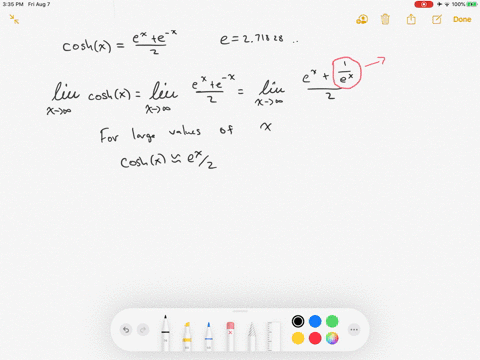 3:35 PM Fri Aug 7
100%
Done
cosh(x) = (e^x + e^-x)/2 e = 2.71828 ..
lim x→∞ cosh(x) = lim x→∞ (e^x + e^-x)/2 = lim x→∞ (e^x + 1/e^x)/2
For large values of x
cosh(x) ≈ e^x/2